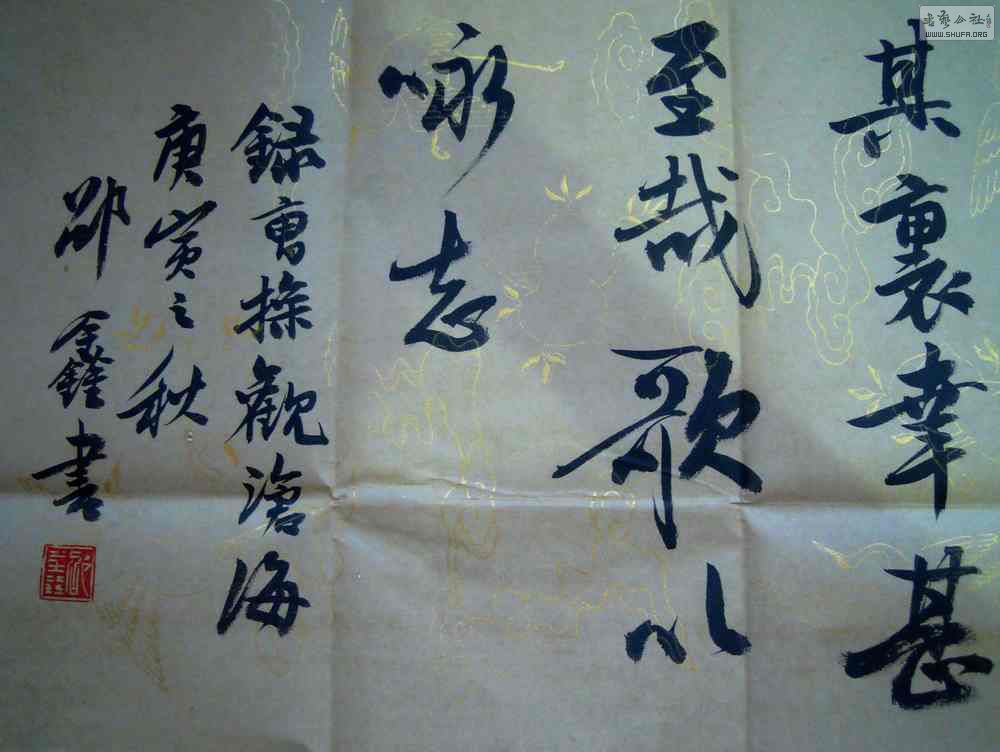 其裏幸甚
至哉歌以
咏志
録曹操觀滄海
庚寅之秋
邵鑫書
書藝公社
WWW.SHUFA.ORG